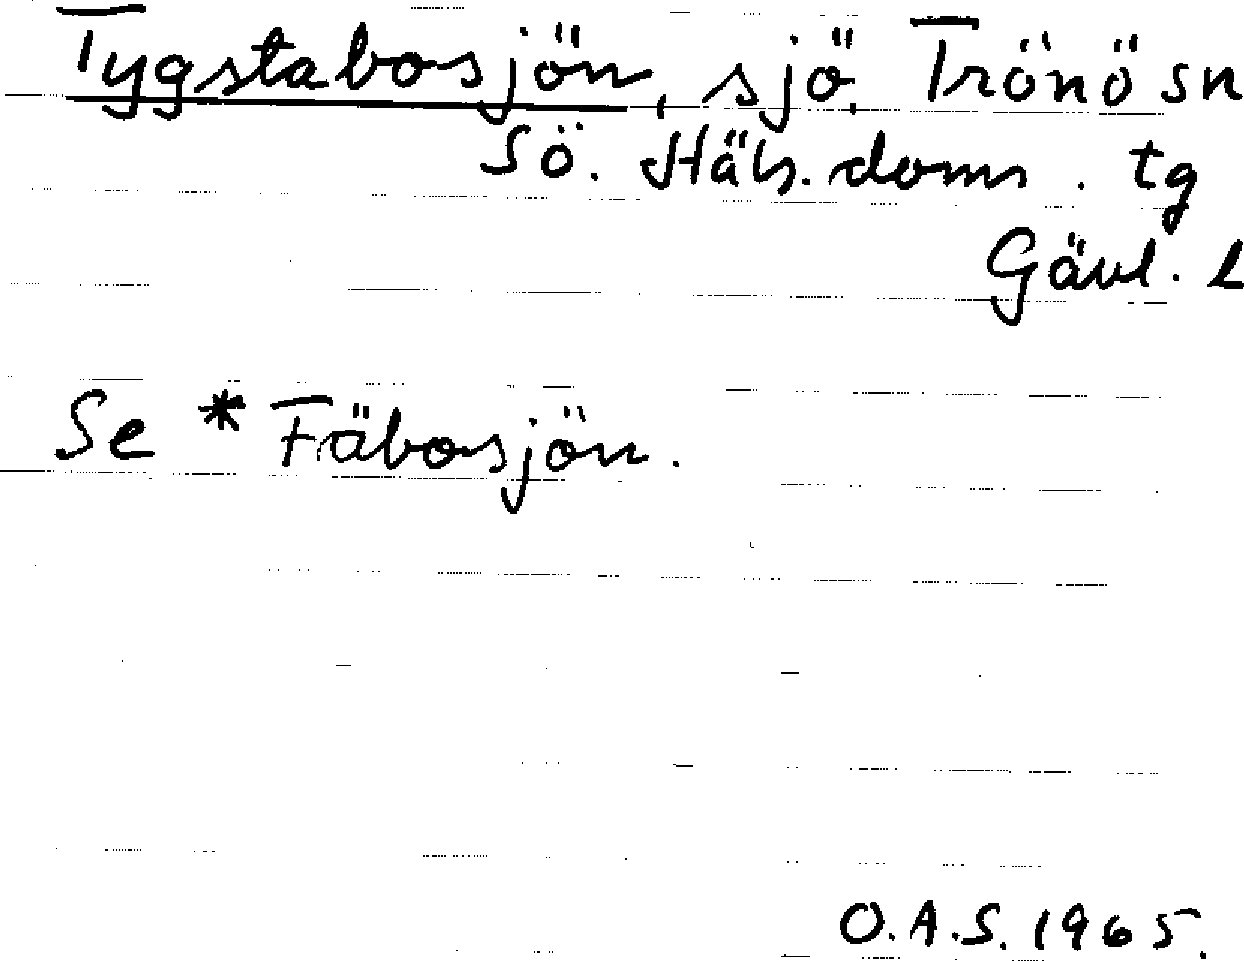 Tygstabosjön, sjö. Trönö sn
Sö. Häls. doms. tg
Gävl. L
Se * Fäbosjön.
O.A.S. 1965.